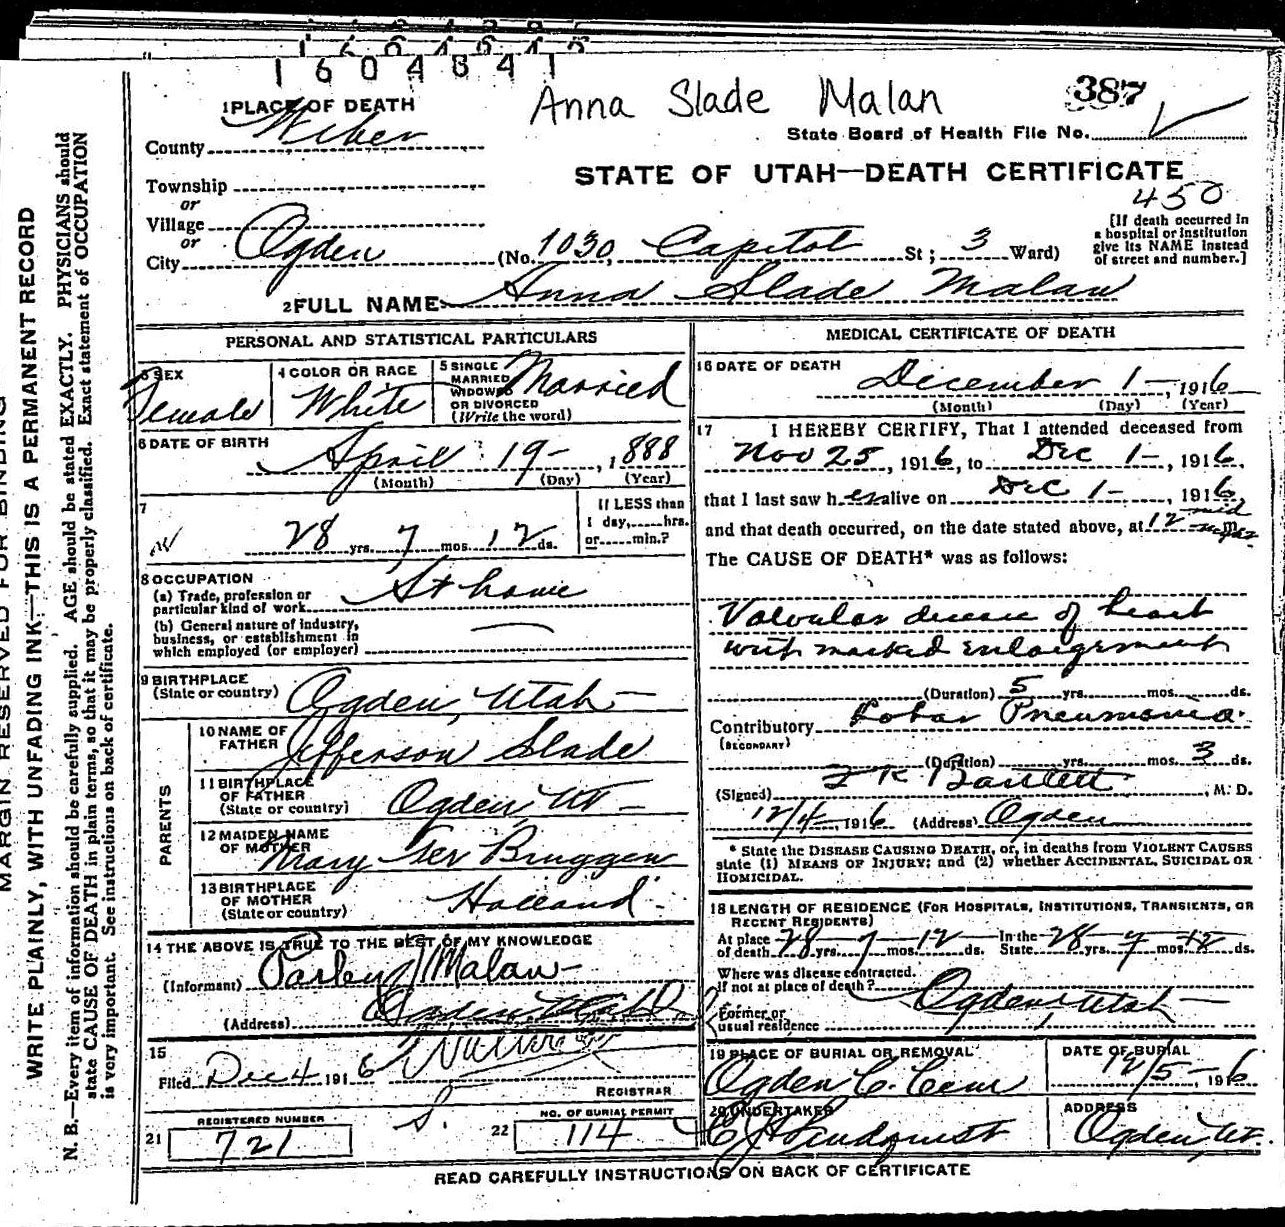 1604841
Anna Slade Malan
387
1 PLACE OF DEATH
State Board of Health File No.
County Weber
STATE OF UTAH—DEATH CERTIFICATE
Township
or
450
Village
or
City Ogden (No. 1030, Capitol St; 3 Ward)
[If death occurred in
a hospital or institution
give its NAME instead
of street and number.]
2 FULL NAME Anna Slade Malan
PERSONAL AND STATISTICAL PARTICULARS
3 SEX Female
4 COLOR OR RACE White
5 SINGLE
MARRIED
WIDOWED
OR DIVORCED
(Write the word) Married
6 DATE OF BIRTH
April 19-, 1888
(Month) (Day) (Year)
7
28 yrs. 7 mos. 12 ds.
If LESS than
1 day,......hrs.
or......min.?
8 OCCUPATION
(a) Trade, profession or
particular kind of work At home
(b) General nature of industry,
business, or establishment in
which employed (or employer)
9 BIRTHPLACE
(State or country) Ogden, Utah
10 NAME OF
FATHER Jefferson Slade
11 BIRTHPLACE
OF FATHER
(State or country) Ogden, Ut
PARENTS
12 MAIDEN NAME
OF MOTHER Mary Ter Bruggen
13 BIRTHPLACE
OF MOTHER
(State or country) Holland
14 THE ABOVE IS TRUE TO THE BEST OF MY KNOWLEDGE
(Informant) Parley J Malan
(Address) Ogden, Utah
15
Filed Dec 4 1916
REGISTRAR
REGISTERED NUMBER
21 721
NO. OF BURIAL PERMIT
22 114
MEDICAL CERTIFICATE OF DEATH
16 DATE OF DEATH
December 1-, 1916
(Month) (Day) (Year)
17 I HEREBY CERTIFY, That I attended deceased from
Nov 25, 1916, to Dec 1-, 1916,
that I last saw her alive on Dec 1-, 1916,
and that death occurred, on the date stated above, at 12 mid night m.
The CAUSE OF DEATH* was as follows:
Valvular disease of heart
with marked enlargement
(Duration) 5 yrs. mos. ds.
Contributory Lobar Pneumonia.
(SECONDARY)
(Duration) yrs. mos. 3 ds.
(Signed) F K Bartlett, M. D.
12/4, 1916 (Address) Ogden
* State the DISEASE CAUSING DEATH, or, in deaths from VIOLENT CAUSES
state (1) MEANS OF INJURY; and (2) whether ACCIDENTAL, SUICIDAL OR
HOMICIDAL.
18 LENGTH OF RESIDENCE (FOR HOSPITALS, INSTITUTIONS, TRANSIENTS, OR
RECENT RESIDENTS)
At place
of death 28 yrs. 7 mos. 12 ds. In the
State 28 yrs. 7 mos. 12 ds.
Where was disease contracted.
If not at place of death?
Former or
usual residence Ogden, Utah
19 PLACE OF BURIAL OR REMOVAL
Ogden C. Cem
DATE OF BURIAL
12/5-, 1916
20 UNDERTAKER
C J Lindquist
ADDRESS
Ogden, Ut.
READ CAREFULLY INSTRUCTIONS ON BACK OF CERTIFICATE
MARGIN RESERVED FOR BINDING
WRITE PLAINLY, WITH UNFADING INK—THIS IS A PERMANENT RECORD
N. B.—Every item of information should be carefully supplied. AGE should be stated EXACTLY. PHYSICIANS should
state CAUSE OF DEATH in plain terms, so that it may be properly classified. Exact statement of OCCUPATION
is very important. See instructions on back of certificate.